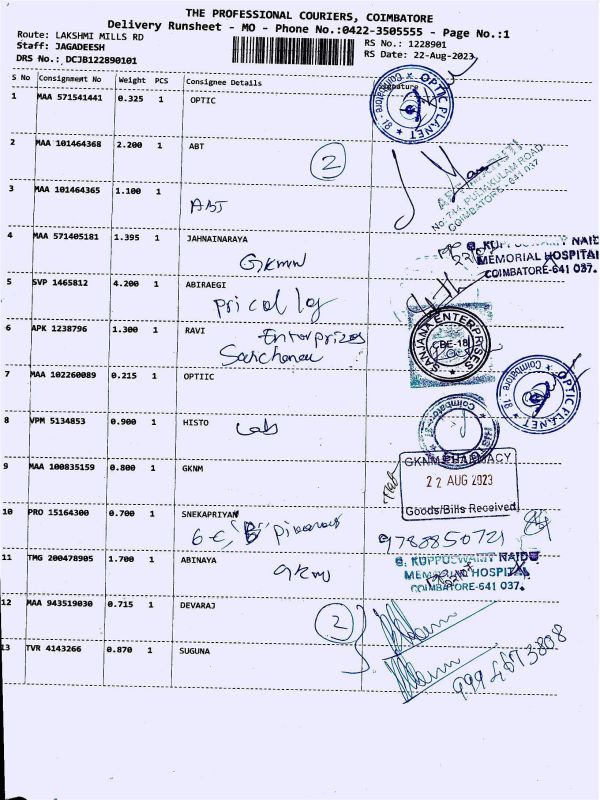 THE PROFESSIONAL COURIERS, COIMBATORE
Delivery Runsheet - MO - Phone No.:0422-3505555 - Page No.:1
Route: LAKSHMI MILLS RD
RS No.: 1228901
Staff: JAGADEESH
RS Date: 22-Aug-2023
DRS No.: DCJB122890101
S No Consignment No Weight PCS Consignee Details Signature
1 MAA 571541441 0.325 1 OPTIC
OPTIC PLANET ★ Coimbatore - 18 ★
2 MAA 101464368 2.200 1 ABT
2
ROAD
COIMBATORE - 641 037
3 MAA 101464365 1.100 1
ABT
4 MAA 571405181 1.395 1 JAHNAINARAYA
GKMN
G. KUPPUSWAMY NAIDU
MEMORIAL HOSPITAL
COIMBATORE-641 037.
5 SVP 1465812 4.200 1 ABIRAEGI
pricol
6 APK 1238796 1.300 1 RAVI
Enterprizes
SANJANA ENTERPRISES
CBE-18
7 MAA 102260089 0.215 1 OPTIIC
OPTIC PLANET ★ Coimbatore - 18 ★
8 VPM 5134853 0.900 1 HISTO
Lab
Coimbatore
9 MAA 100835159 0.800 1 GKNM
GKNM PHARMACY
22 AUG 2023
Goods/Bills Received
10 PRO 15164300 0.700 1 SNEKAPRIYAN
6-E, "B"
9788850721
11 TMG 200478905 1.700 1 ABINAYA
G. KUPPUSWAMY NAIDU
MEMORIAL HOSPITAL
COIMBATORE-641 037.
12 MAA 943519030 0.715 1 DEVARAJ
2
13 TVR 4143266 0.870 1 SUGUNA